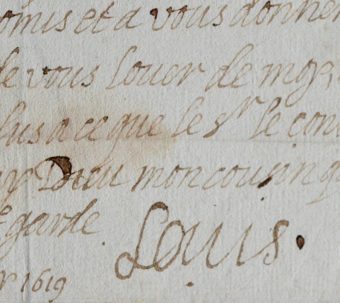 omis et a vous donner
de vous louer de moy,
plus a ce que le Sr le con
Dieu mon cousin q
garde
Louis.
1619